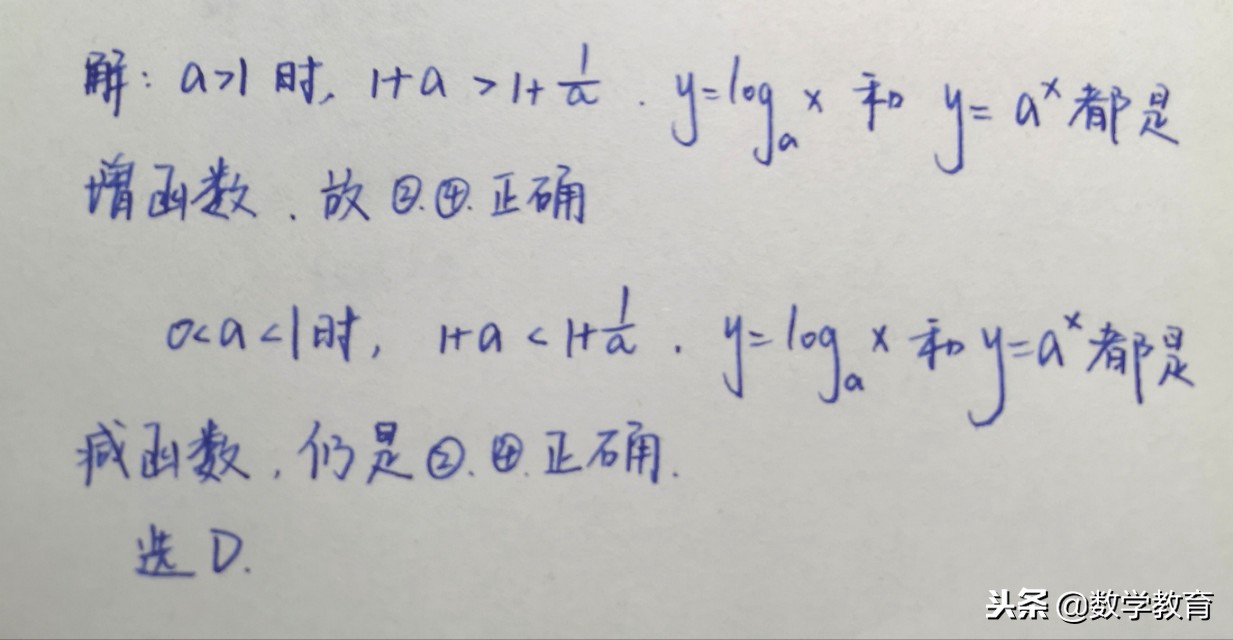 解: a>1 时, 1+a >1+1/a. y=logₐx 和 y=aˣ 都是
增函数、故②.④.正确
0<a<1时, 1+a<1+1/a. y=logₐx 和y=aˣ都是
减函数, 仍是②.④.正确.
选D.
头条 @数学教育